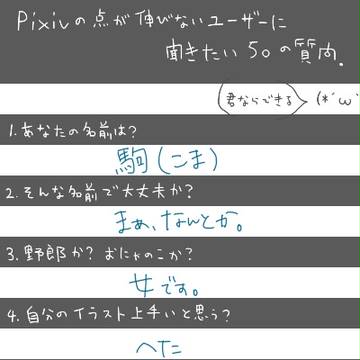 Pixivの点が伸びないユーザーに
聞きたい50の質問.
君ならできる
(*´ω`
1.あなたの名前は?
駒(こま)
2.そんな名前で大丈夫か?
まぁ、なんとか。
3.野郎か?おにゃのこか?
女です。
4.自分のイラスト上手いと思う?
ヘタ